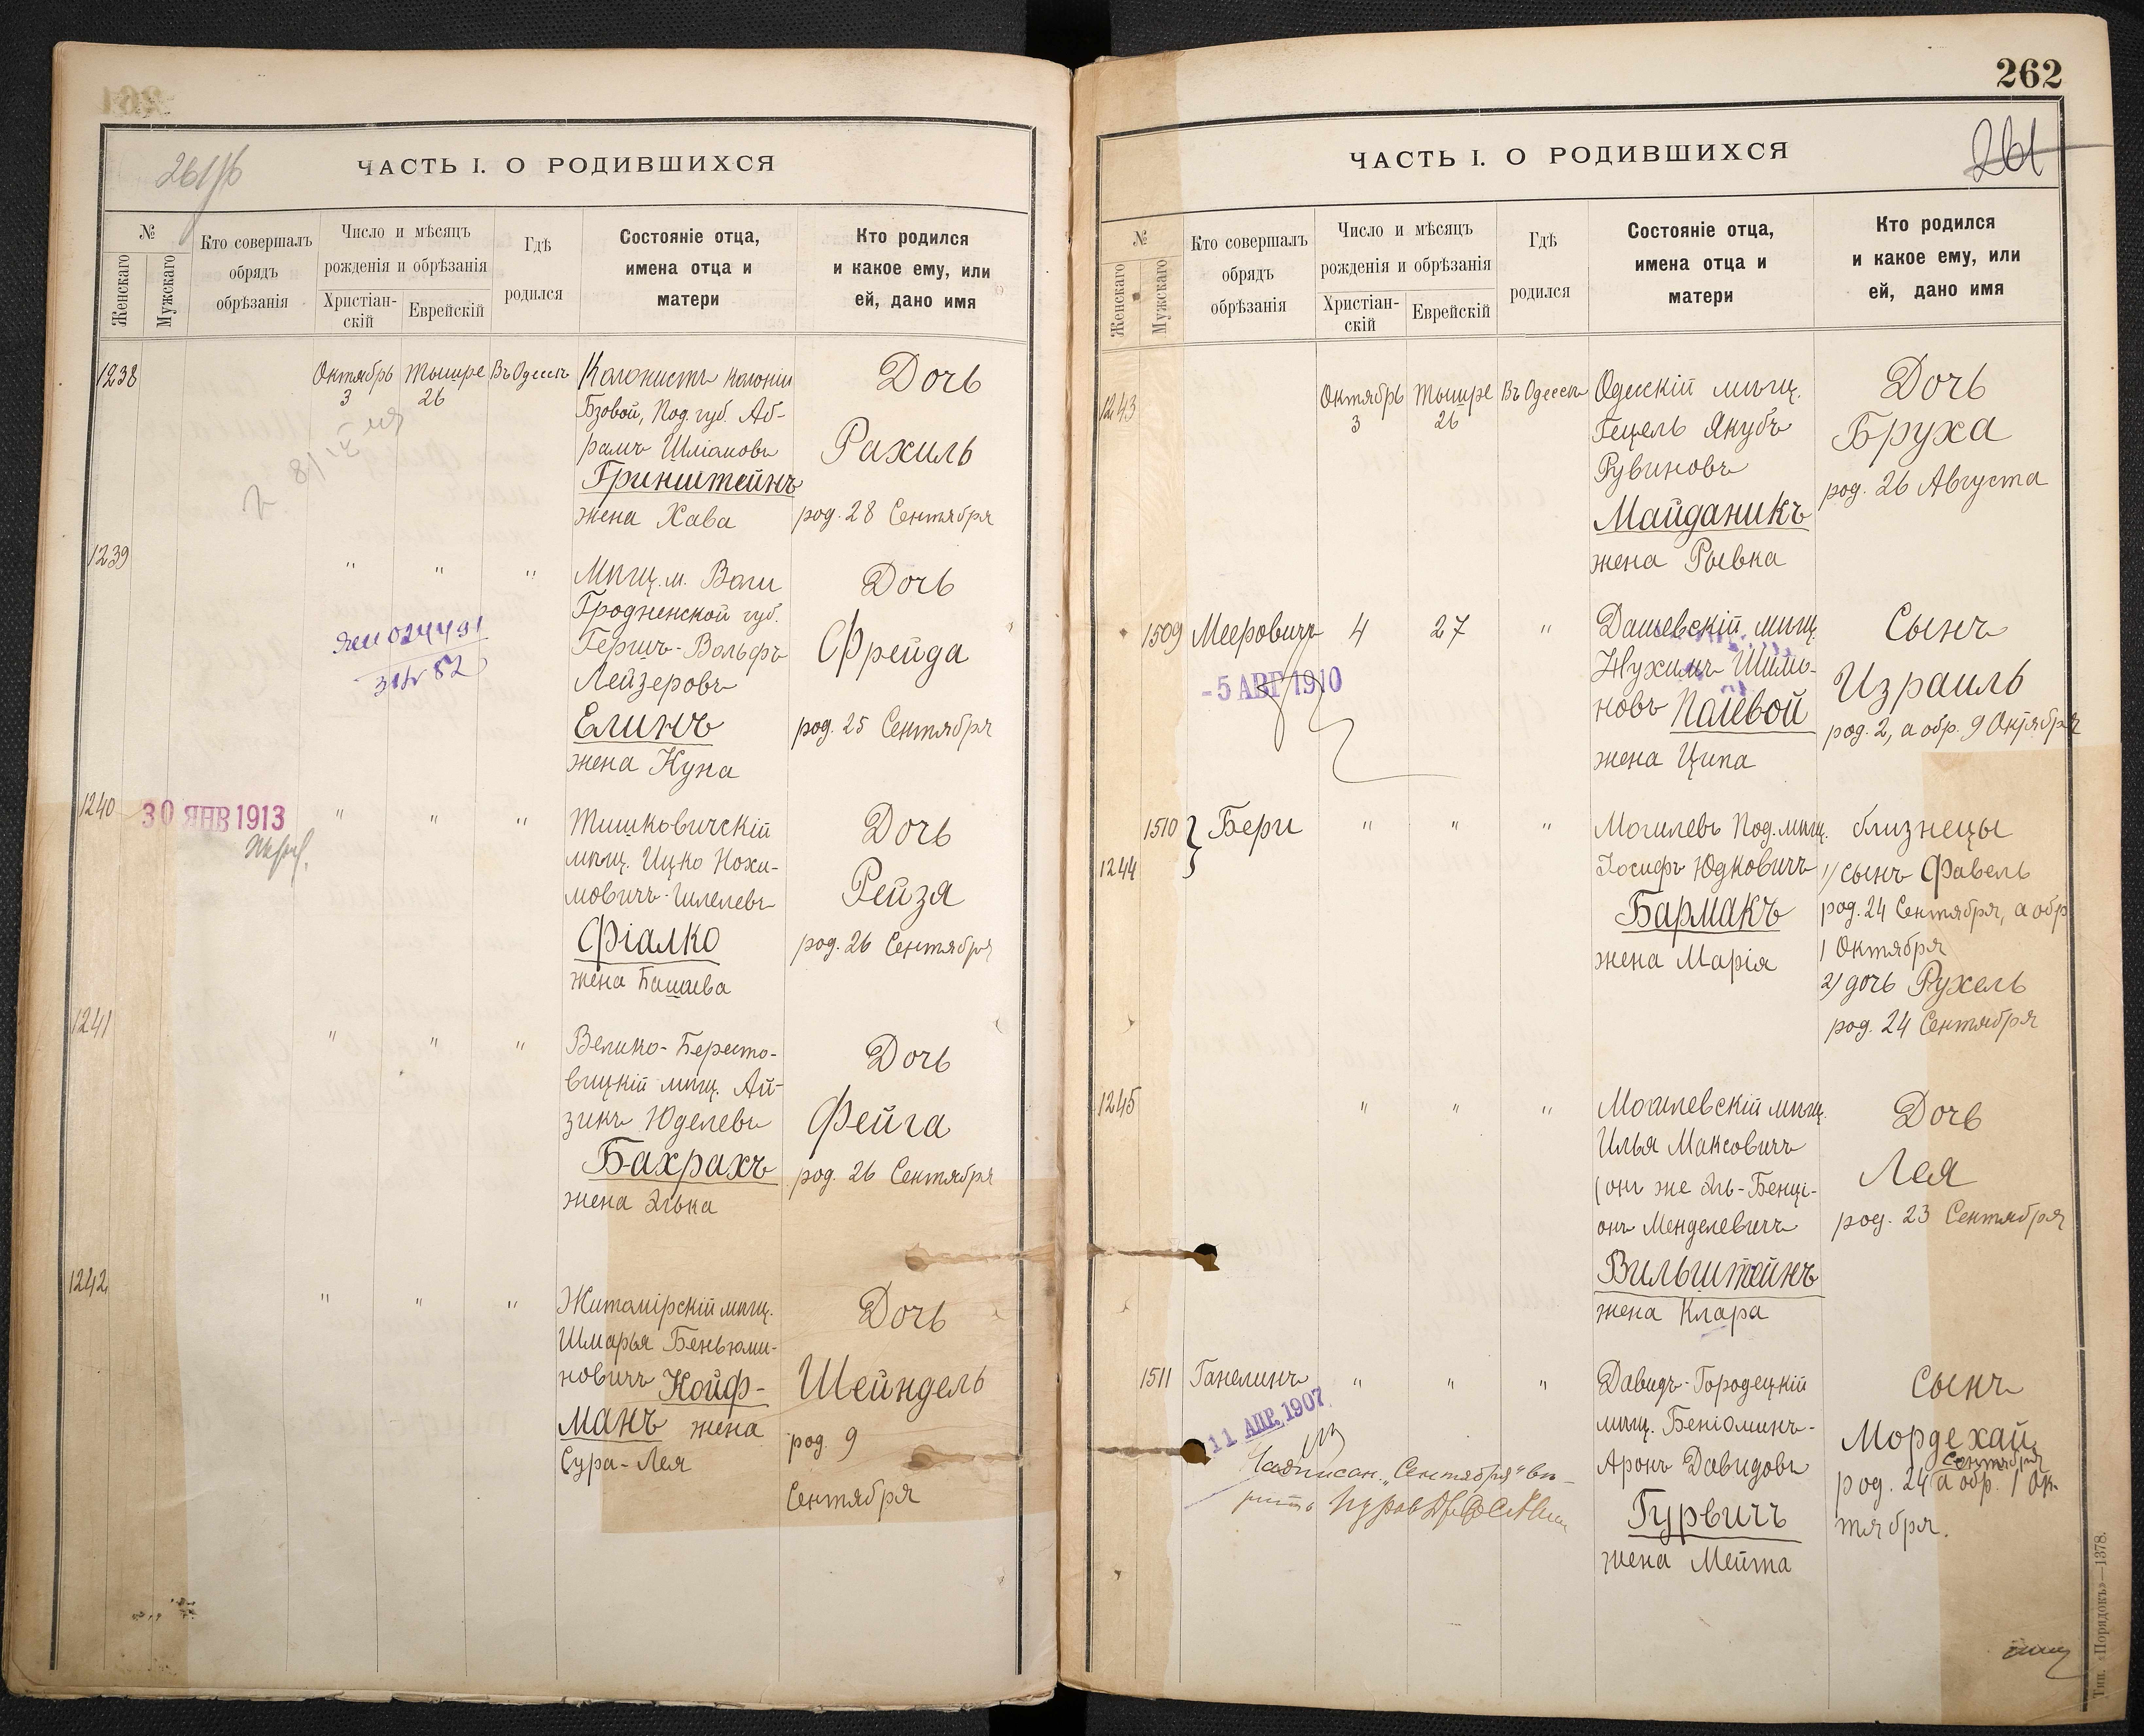 261/б
ЧАСТЬ I. О РОДИВШИХСЯ
№
Женскаго
Мужскаго
Кто совершалъ
обрядъ
обрѣзанія
Число и мѣсяцъ
рожденія и обрѣзанія
Христіан-
скій
Еврейскій
Гдѣ
родился
Состояніе отца,
имена отца и
матери
Кто родился
и какое ему, или
ей, дано имя
1238
Октябрь
3
Тышре
26
Въ Одессѣ
Колонистъ колоніи
Бзовой, Под. губ. Аб-
рамъ Шліомовъ
Гринштейнъ
жена Хава
Дочь
Рахиль
род. 28 Сентября
1239
" " "
Мѣщ. м. Волпи
Гродненской губ.
Гершъ-Вольфъ
Лейзеровъ
Елинъ
жена Куна
Дочь
Фрейда
род. 25 Сентября
024491
82
1240
30 ЯНВ 1913
" " "
Тишковичскій
мѣщ. Ицко Нохи-
мовичъ-Шлелевъ
Фіалко
жена Башева
Дочь
Рейза
род. 26 Сентября
1241
" " "
Велико-Бересто-
вицкій мѣщ. Ай-
зикъ Юделевъ
Бахрахъ
жена Элька
Дочь
Фейга
род. 26 Сентября
1242
" " "
Житомірскій мѣщ.
Шмарья Беньюми-
новичъ Койф-
манъ жена
Сура-Лея
Дочь
Шейндель
род. 9
Сентября
262
261
ЧАСТЬ I. О РОДИВШИХСЯ
№
Женскаго
Мужскаго
Кто совершалъ
обрядъ
обрѣзанія
Число и мѣсяцъ
рожденія и обрѣзанія
Христіан-
скій
Еврейскій
Гдѣ
родился
Состояніе отца,
имена отца и
матери
Кто родился
и какое ему, или
ей, дано имя
1243
Октябрь
3
Тышре
26
Въ Одессѣ
Одесскій мѣщ.
Гецель Якубъ
Рувиновъ
Майданикъ
жена Рывка
Дочь
Бруха
род. 26 Августа
1509
Мееровичъ
4
27
"
-5 АВГ 1910
Дашевскій мѣщ.
Нухимъ Шимо-
новъ Полевой
жена Ципа
Сынъ
Израиль
род. 2, а обр. 9 Октября
1510
1244
Бери
" " "
Могилевъ Под. мѣщ.
Іосифъ Юдковичъ
Бармакъ
жена Марія
близнецы
1/ сынъ Фавель
род. 24 Сентября, а обр
1 Октября
2/ дочь Рухель
род. 24 Сентября
1245
" " "
Могилевскій мѣщ.
Илья Максовичъ
(онъ же Эль-Бенці-
онъ Менделевичъ
Вильштейнъ
жена Клара
Дочь
Лея
род. 23 Сентября
1511
Ганелинъ
" " "
11 АПР. 1907
Надписан. „Сентября" вѣ-
рить
Давидъ-Городецкій
мѣщ. Беніоминъ-
Аронъ Давидовъ
Гурвичъ
жена Мейта
Сынъ
Мордехай
Сентября
род. 24 а обр. 1 Ок-
тября.
Тип. «Порядокъ»—1378.